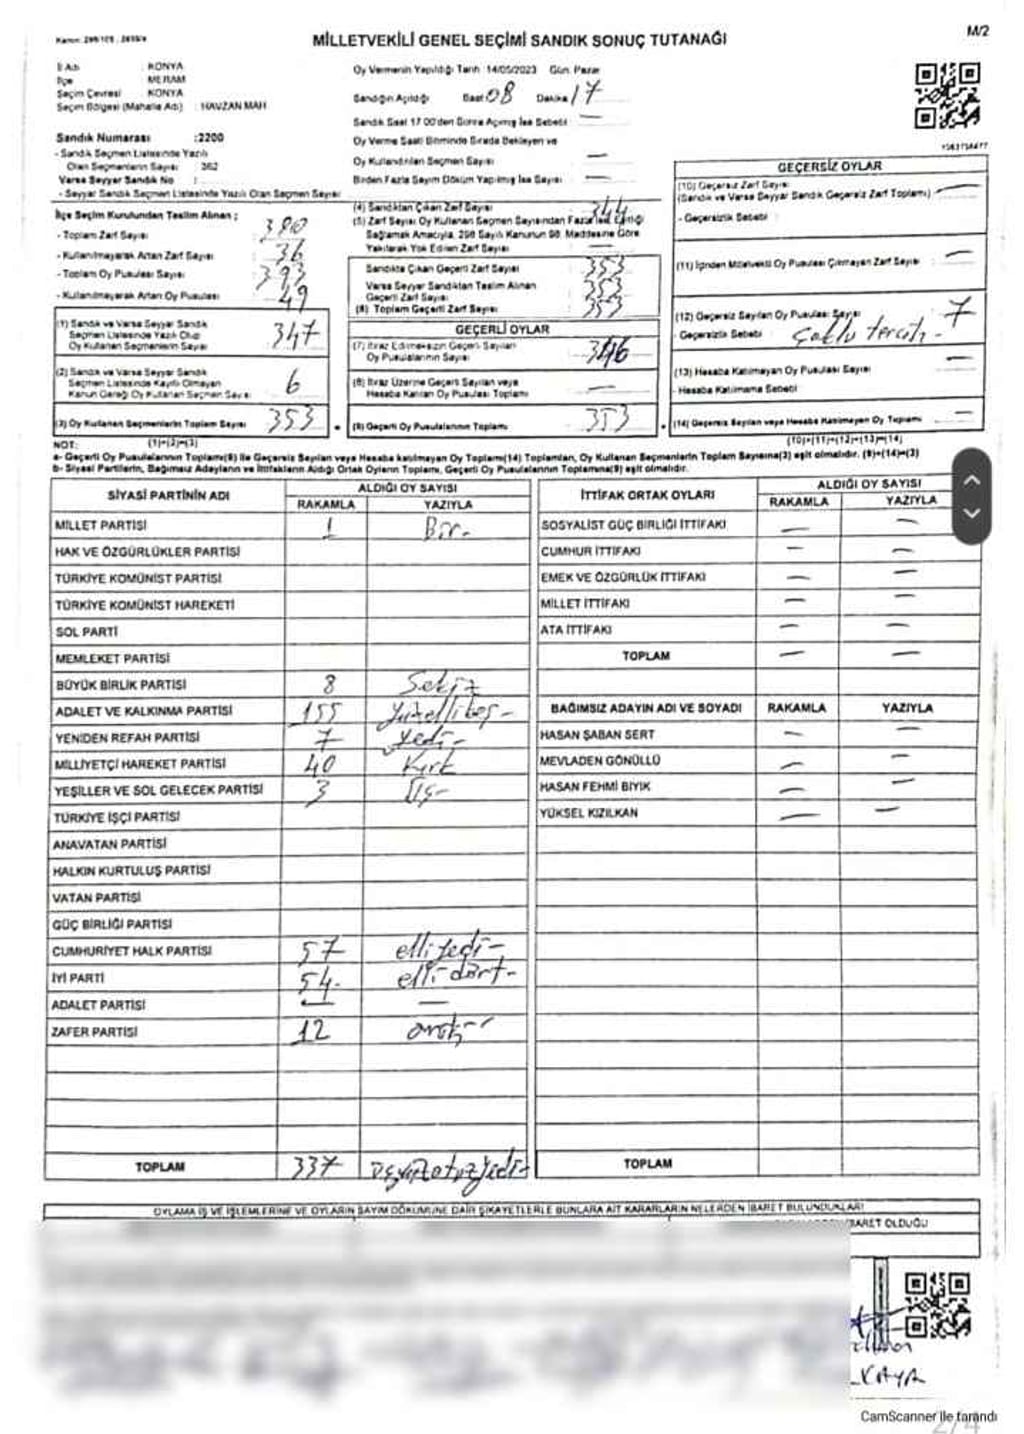 Kanun: 298/105, 2839/4
M/2
MİLLETVEKİLİ GENEL SEÇİMİ SANDIK SONUÇ TUTANAĞI
İl Adı : KONYA
İlçe : MERAM
Seçim Çevresi : KONYA
Seçim Bölgesi (Mahalle Adı) : HAVZAN MAH
Sandık Numarası :2200
- Sandık Seçmen Listesinde Yazılı
Olan Seçmenlerin Sayısı : 362
Varsa Seyyar Sandık No :
- Seyyar Sandık Seçmen Listesinde Yazılı Olan Seçmen Sayısı
Oy Vermenin Yapıldığı Tarih :14/05/2023 Gün: Pazar
Sandığın Açıldığı Saat 08 Dakika 17
Sandık Saat 17.00'den Sonra Açılmış İse Sebebi : —
Oy Verme Saati Bitiminde Sırada Bekleyen ve
Oy Kullandırılan Seçmen Sayısı —
Birden Fazla Sayım Döküm Yapılmış İse Sayısı —
İlçe Seçim Kurulundan Teslim Alınan ;
- Toplam Zarf Sayısı 380
- Kullanılmayarak Artan Zarf Sayısı 36
- Toplam Oy Pusulası Sayısı 393
- Kullanılmayarak Artan Oy Pusulası 49
(1) Sandık ve Varsa Seyyar Sandık
Seçmen Listesinde Yazılı Olup
Oy Kullanan Seçmenlerin Sayısı 347
(2) Sandık ve Varsa Seyyar Sandık
Seçmen Listesinde Kayıtlı Olmayan
Kanun Gereği Oy Kullanan Seçmen Sayısı 6
(3) Oy Kullanan Seçmenlerin Toplam Sayısı 353
(1)+(2)=(3)
(4) Sandıktan Çıkan Zarf Sayısı 344
(5) Zarf Sayısı Oy Kullanan Seçmen Sayısından Fazla İse, Eşitliği
Sağlamak Amacıyla, 298 Sayılı Kanunun 98. Maddesine Göre
Yakılarak Yok Edilen Zarf Sayısı —
Sandıkta Çıkan Geçerli Zarf Sayısı 353
Varsa Seyyar Sandıktan Teslim Alınan
Geçerli Zarf Sayısı 353
(6) Toplam Geçerli Zarf Sayısı 353
GEÇERLİ OYLAR
(7) İtiraz Edilmeksizin Geçerli Sayılan
Oy Pusulalarının Sayısı 346
(8) İtiraz Üzerine Geçerli Sayılan veya
Hesaba Katılan Oy Pusulası Toplamı —
(9) Geçerli Oy Pusulalarının Toplamı 353
GEÇERSİZ OYLAR
(10) Geçersiz Zarf Sayısı
(Sandık ve Varsa Seyyar Sandık Geçersiz Zarf Toplamı) —
- Geçersizlik Sebebi :
(11) İçinden Milletvekili Oy Pusulası Çıkmayan Zarf Sayısı —
(12) Geçersiz Sayılan Oy Pusulası Sayısı 7
- Geçersizlik Sebebi Çoklu tercih
(13) Hesaba Katılmayan Oy Pusulası Sayısı —
- Hesaba Katılmama Sebebi
(14) Geçersiz Sayılan veya Hesaba Katılmayan Oy Toplamı —
(10)+(11)+(12)+(13)=(14)
NOT:
a- Geçerli Oy Pusulalarının Toplamı(9) ile Geçersiz Sayılan veya Hesaba katılmayan Oy Toplamı(14) Toplamları, Oy Kullanan Seçmenlerin Toplam Sayısına(3) eşit olmalıdır. (9)+(14)=(3)
b- Siyasi Partilerin, Bağımsız Adayların ve İttifakların Aldığı Ortak Oyların Toplamı, Geçerli Oy Pusulalarının Toplamına(9) eşit olmalıdır.
SİYASİ PARTİNİN ADI ALDIĞI OY SAYISI
RAKAMLA YAZIYLA
MİLLET PARTİSİ 1 Bir-
HAK VE ÖZGÜRLÜKLER PARTİSİ
TÜRKİYE KOMÜNİST PARTİSİ
TÜRKİYE KOMÜNİST HAREKETİ
SOL PARTİ
MEMLEKET PARTİSİ
BÜYÜK BİRLİK PARTİSİ 8 Sekiz
ADALET VE KALKINMA PARTİSİ 155 Yüzellibeş-
YENİDEN REFAH PARTİSİ 7 Yedi-
MİLLİYETÇİ HAREKET PARTİSİ 40 Kırk
YEŞİLLER VE SOL GELECEK PARTİSİ 3 Üç-
TÜRKİYE İŞÇİ PARTİSİ
ANAVATAN PARTİSİ
HALKIN KURTULUŞ PARTİSİ
VATAN PARTİSİ
GÜÇ BİRLİĞİ PARTİSİ
CUMHURİYET HALK PARTİSİ 57 elliyedi-
İYİ PARTİ 54- elli-dört-
ADALET PARTİSİ — —
ZAFER PARTİSİ 12
TOPLAM 337 üçyüzotuzyedi-
İTTİFAK ORTAK OYLARI ALDIĞI OY SAYISI
RAKAMLA YAZIYLA
SOSYALİST GÜÇ BİRLİĞİ İTTİFAKI — —
CUMHUR İTTİFAKI — —
EMEK VE ÖZGÜRLÜK İTTİFAKI — —
MİLLET İTTİFAKI — —
ATA İTTİFAKI — —
TOPLAM — —
BAĞIMSIZ ADAYIN ADI VE SOYADI RAKAMLA YAZIYLA
HASAN ŞABAN SERT — —
MEVLADEN GÖNÜLLÜ — —
HASAN FEHMİ BIYIK — —
YÜKSEL KIZILKAN — —
TOPLAM
OYLAMA İŞ VE İŞLEMLERİNE VE OYLARIN SAYIM DÖKÜMÜNE DAİR ŞİKAYETLERLE BUNLARA AİT KARARLARIN NELERDEN İBARET BULUNDUKLARI
BARET OLDUĞU
KAYA
CamScanner ile tarandı
2/4